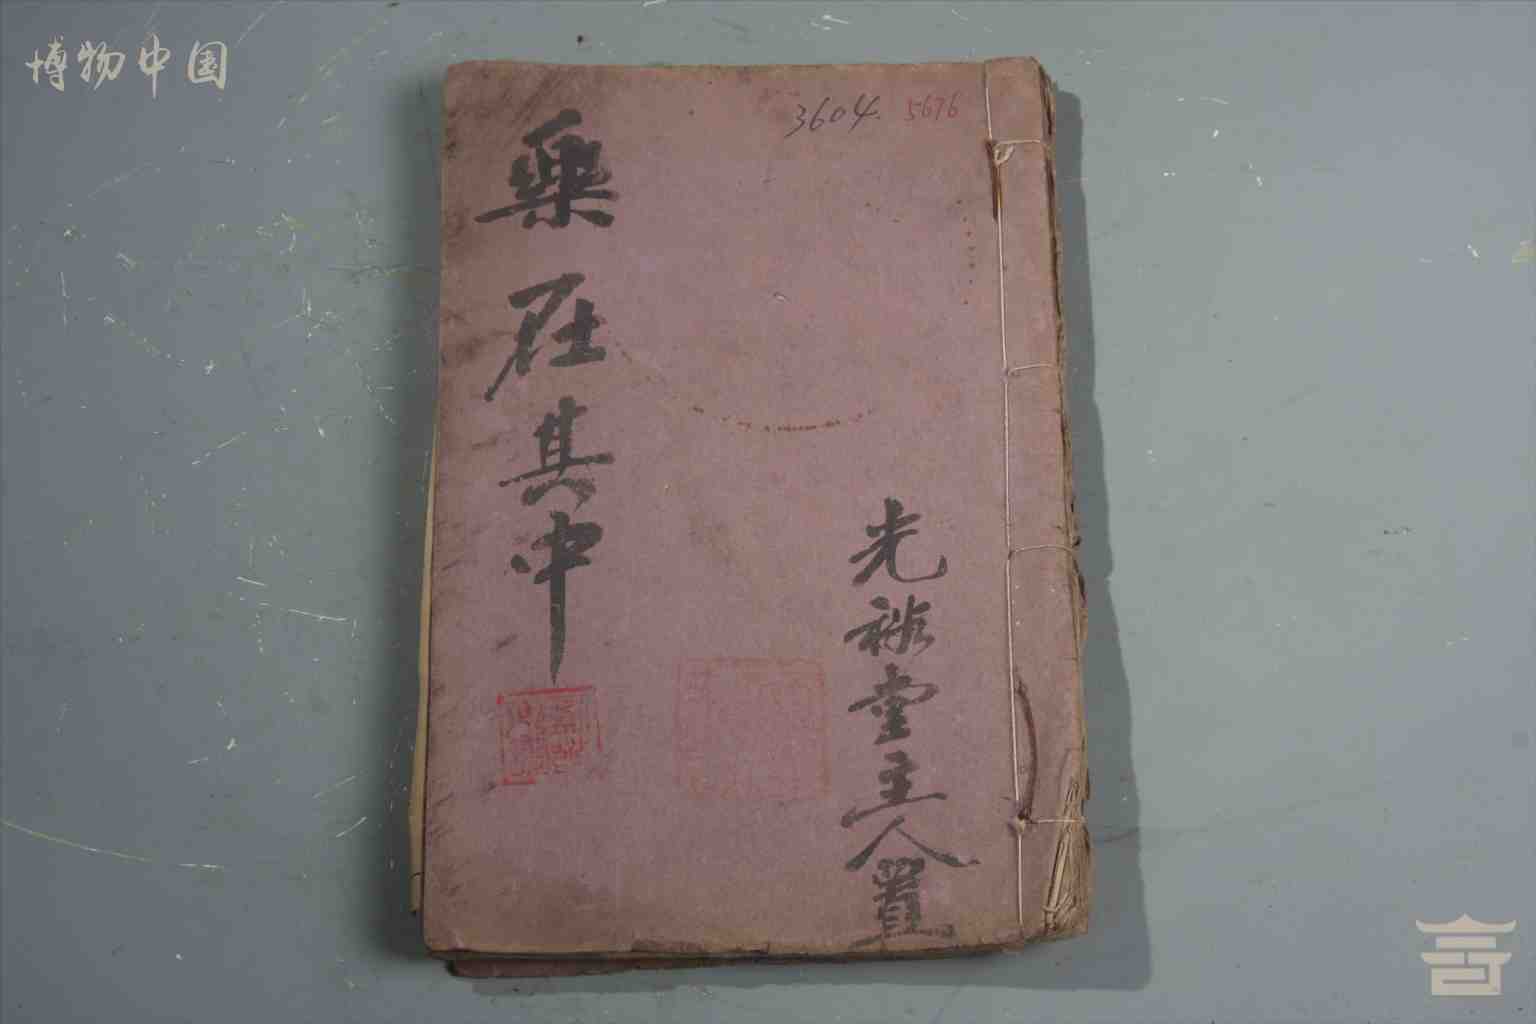 博物中国
3604. 5676
光裕堂主人置
樂在其中